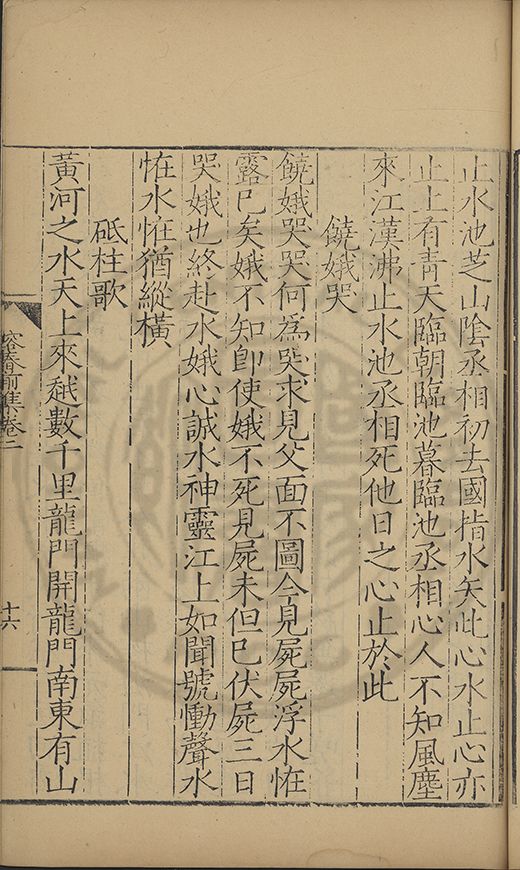 止水池芝山陰丞相初去國指水矢此心水止心亦
止上有青天臨朝臨池暮臨池丞相心人不知風塵
來江漢沸止水池丞相死他日之心止於此
饒娥哭
饒娥哭哭何為哭求見父面不圖今見屍屍浮水恠
露已矣娥不知即使娥不死見屍未但已伏屍三日
哭娥也終赴水娥心誠水神靈江上如聞號慟聲水
恠水恠猶縱橫
砥柱歌
黃河之水天上來越數千里龍門開龍門南東有山
容春前集卷二
十六